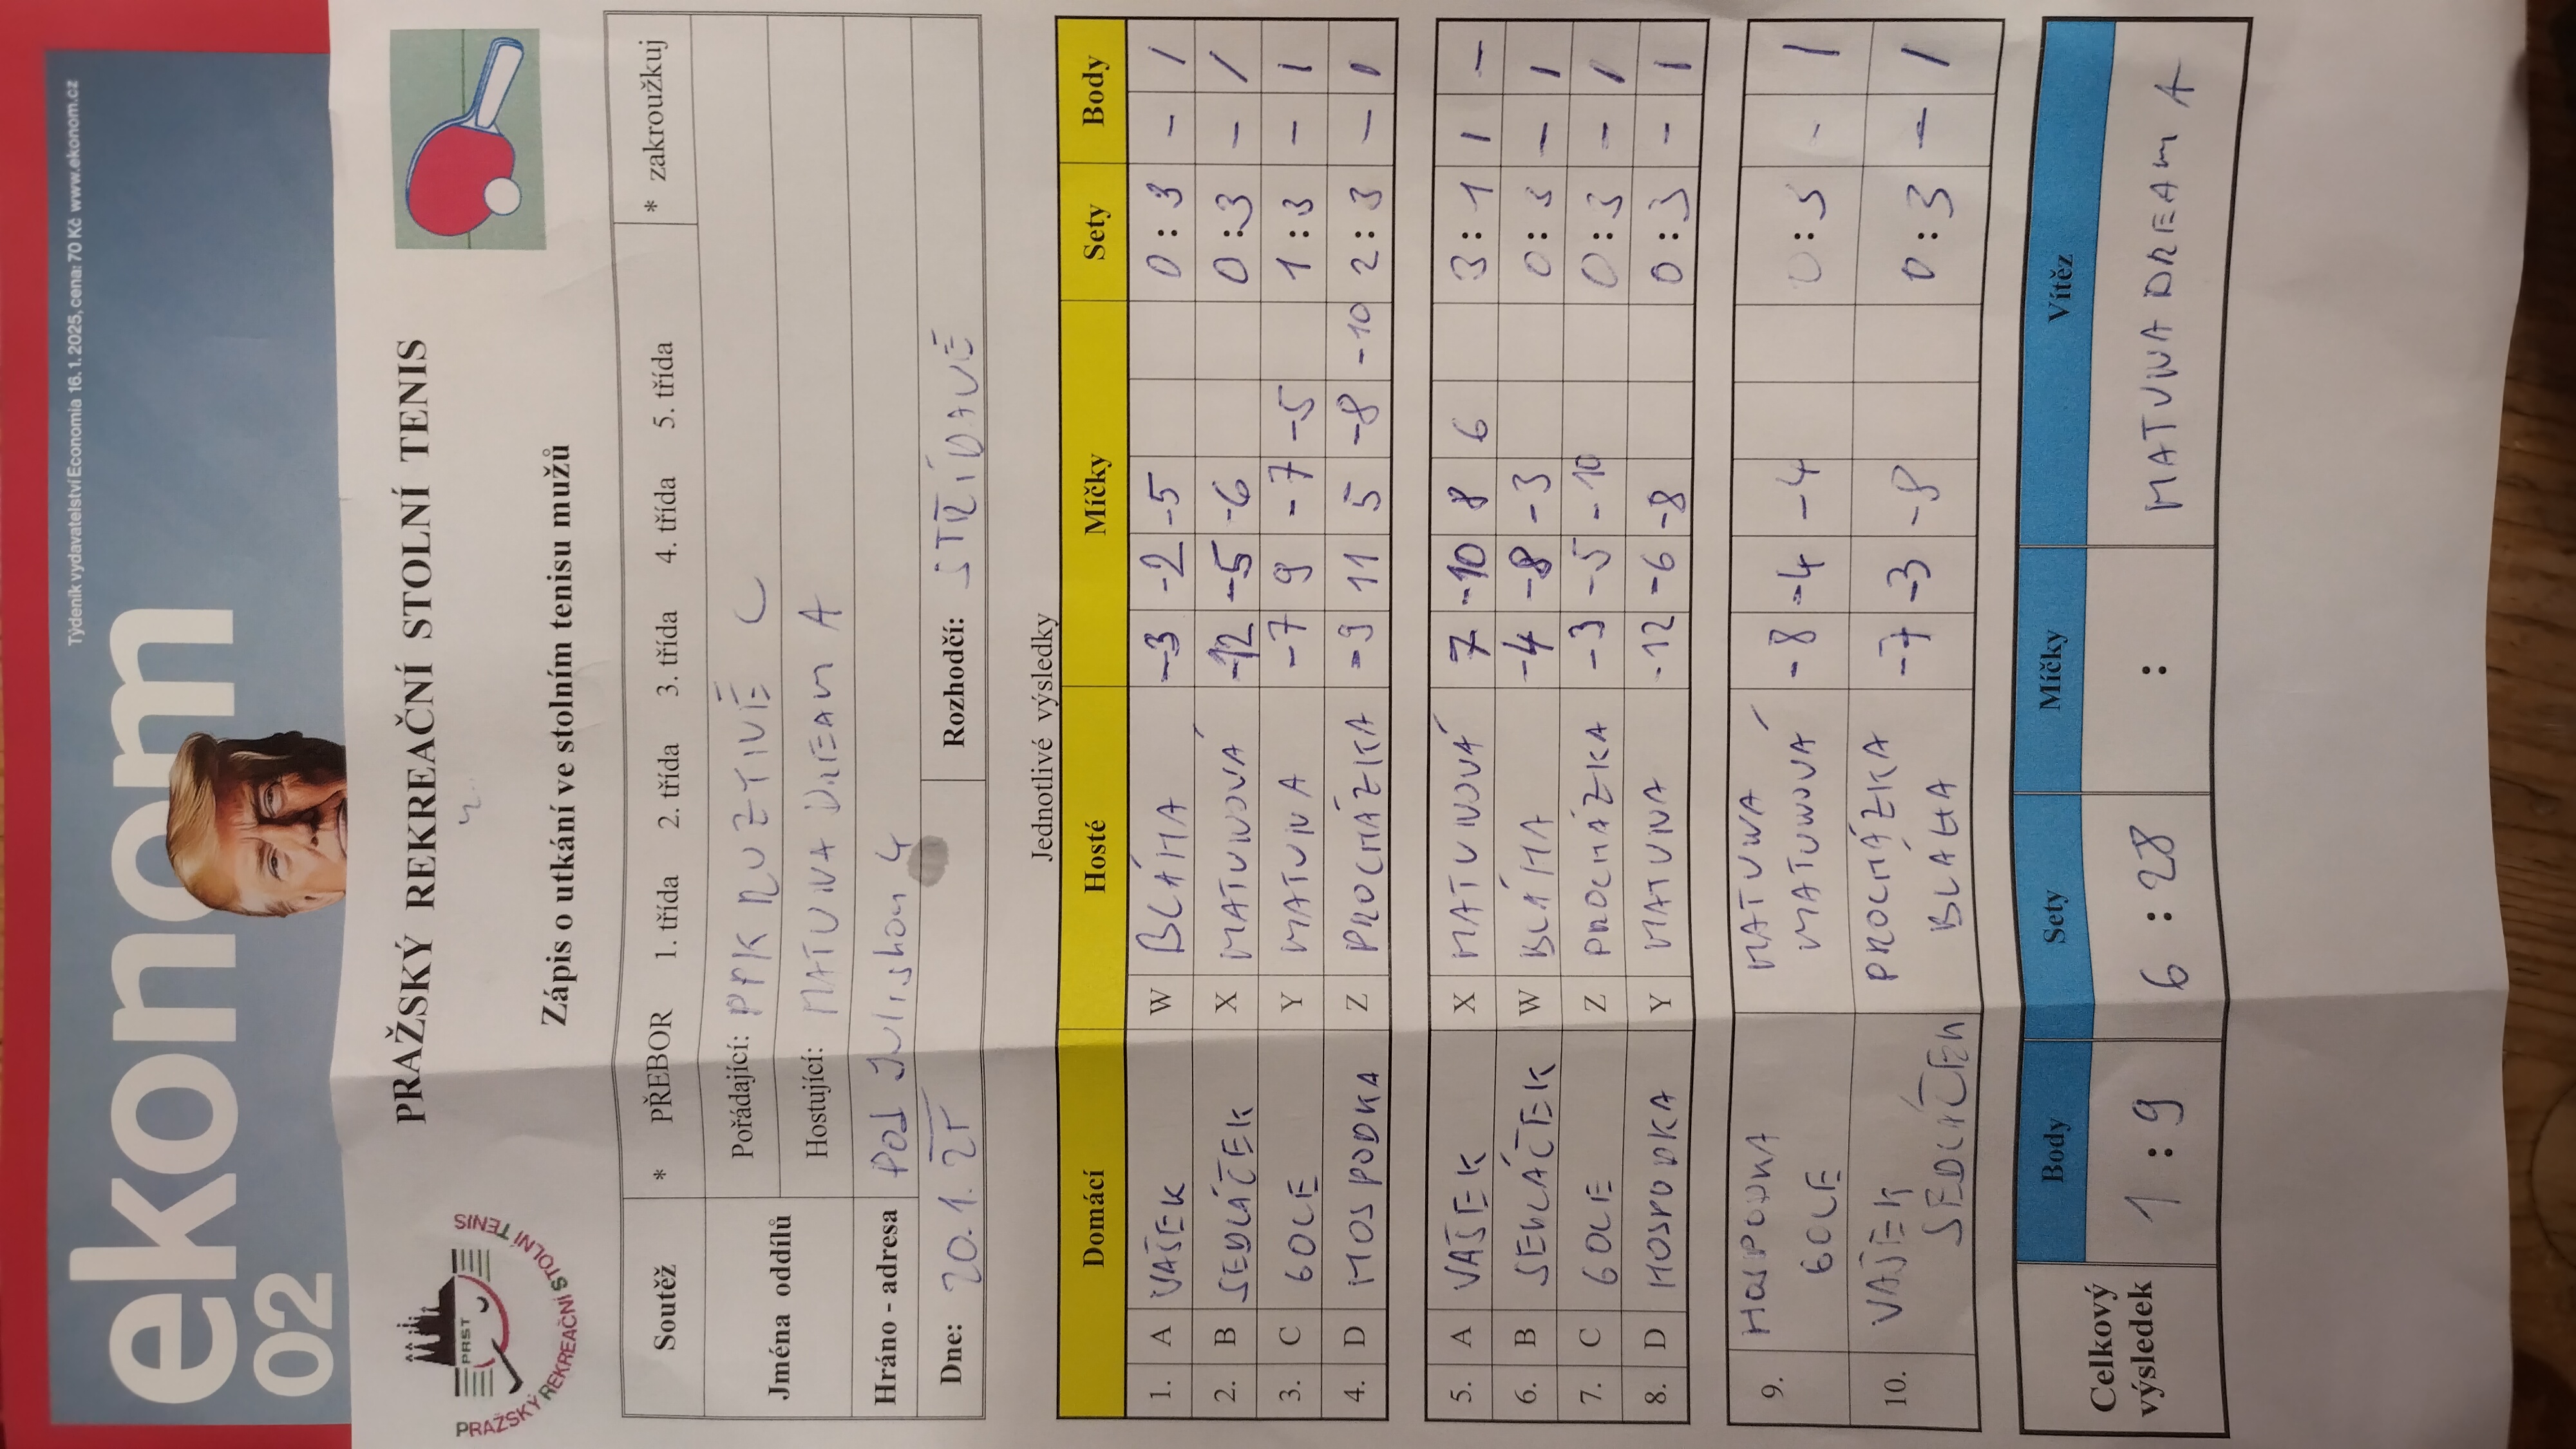 Týdeník vydavatelství Economia 16. 1. 2025, cena: 70 Kč www.ekonom.cz
ekonom
02
PRAŽSKÝ REKREAČNÍ STOLNÍ TENIS
PRST
PRAŽSKÝ REKREAČNÍ STOLNÍ TENIS
Zápis o utkání ve stolním tenisu mužů
Soutěž * PŘEBOR 1. třída 2. třída 3. třída 4. třída 5. třída * zakroužkuj
Jména oddílů Pořádající: PPK RUZYNĚ C
Hostující: MATUNA DREAM A
Hráno - adresa Pod Juliskou 4
Dne: 20.1.25 Rozhodčí: STŘÍDAVĚ
Jednotlivé výsledky
Domácí Hosté Míčky Sety Body
1. A VAŠEK W BLÁHA -3 -2 -5 0:3 - 1
2. B SEDLÁČEK X MATUNOVÁ -12 -5 -6 0:3 - 1
3. C GOLE Y MATUNA -7 9 -7 -5 1:3 - 1
4. D HOSPODKA Z PROCHÁZKA -9 11 5 -8 -10 2:3 - 1
5. A VAŠEK X MATUNOVÁ 7 -10 8 6 3:1 1 -
6. B SEDLÁČEK W BLÁHA -4 -8 -3 0:3 - 1
7. C GOLE Z PROCHÁZKA -3 -5 -10 0:3 - 1
8. D HOSPODKA Y MATUNA -12 -6 -8 0:3 - 1
9. HOSPODKA MATUNA -8 -4 -4 0:3 - 1
GOLE MATUNOVÁ
10. VAŠEK PROCHÁZKA -7 -3 -8 0:3 - 1
SEDLÁČEK BLÁHA
Celkový výsledek Body Sety Míčky Vítěz
1:9 6:28 : MATUNA DREAM A